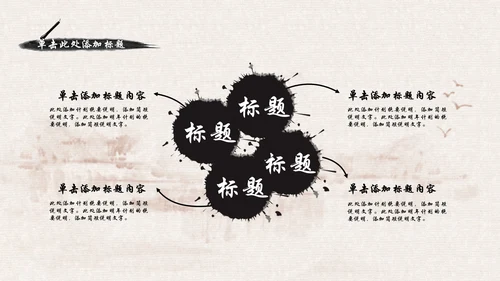 单击此处添加标题
单击添加标题内容
此处添加计划概要说明、添加简短
说明文字。此处添加明年计划的概
要说明、添加简短说明文字。
单击添加标题内容
此处添加计划概要说明、添加简短
说明文字。此处添加明年计划的概
要说明、添加简短说明文字。
标题
标题
标题
标题
单击添加标题内容
此处添加计划概要说明、添加简短
说明文字。此处添加明年计划的概
要说明、添加简短说明文字。
单击添加标题内容
此处添加计划概要说明、添加简短
说明文字。此处添加明年计划的概
要说明、添加简短说明文字。